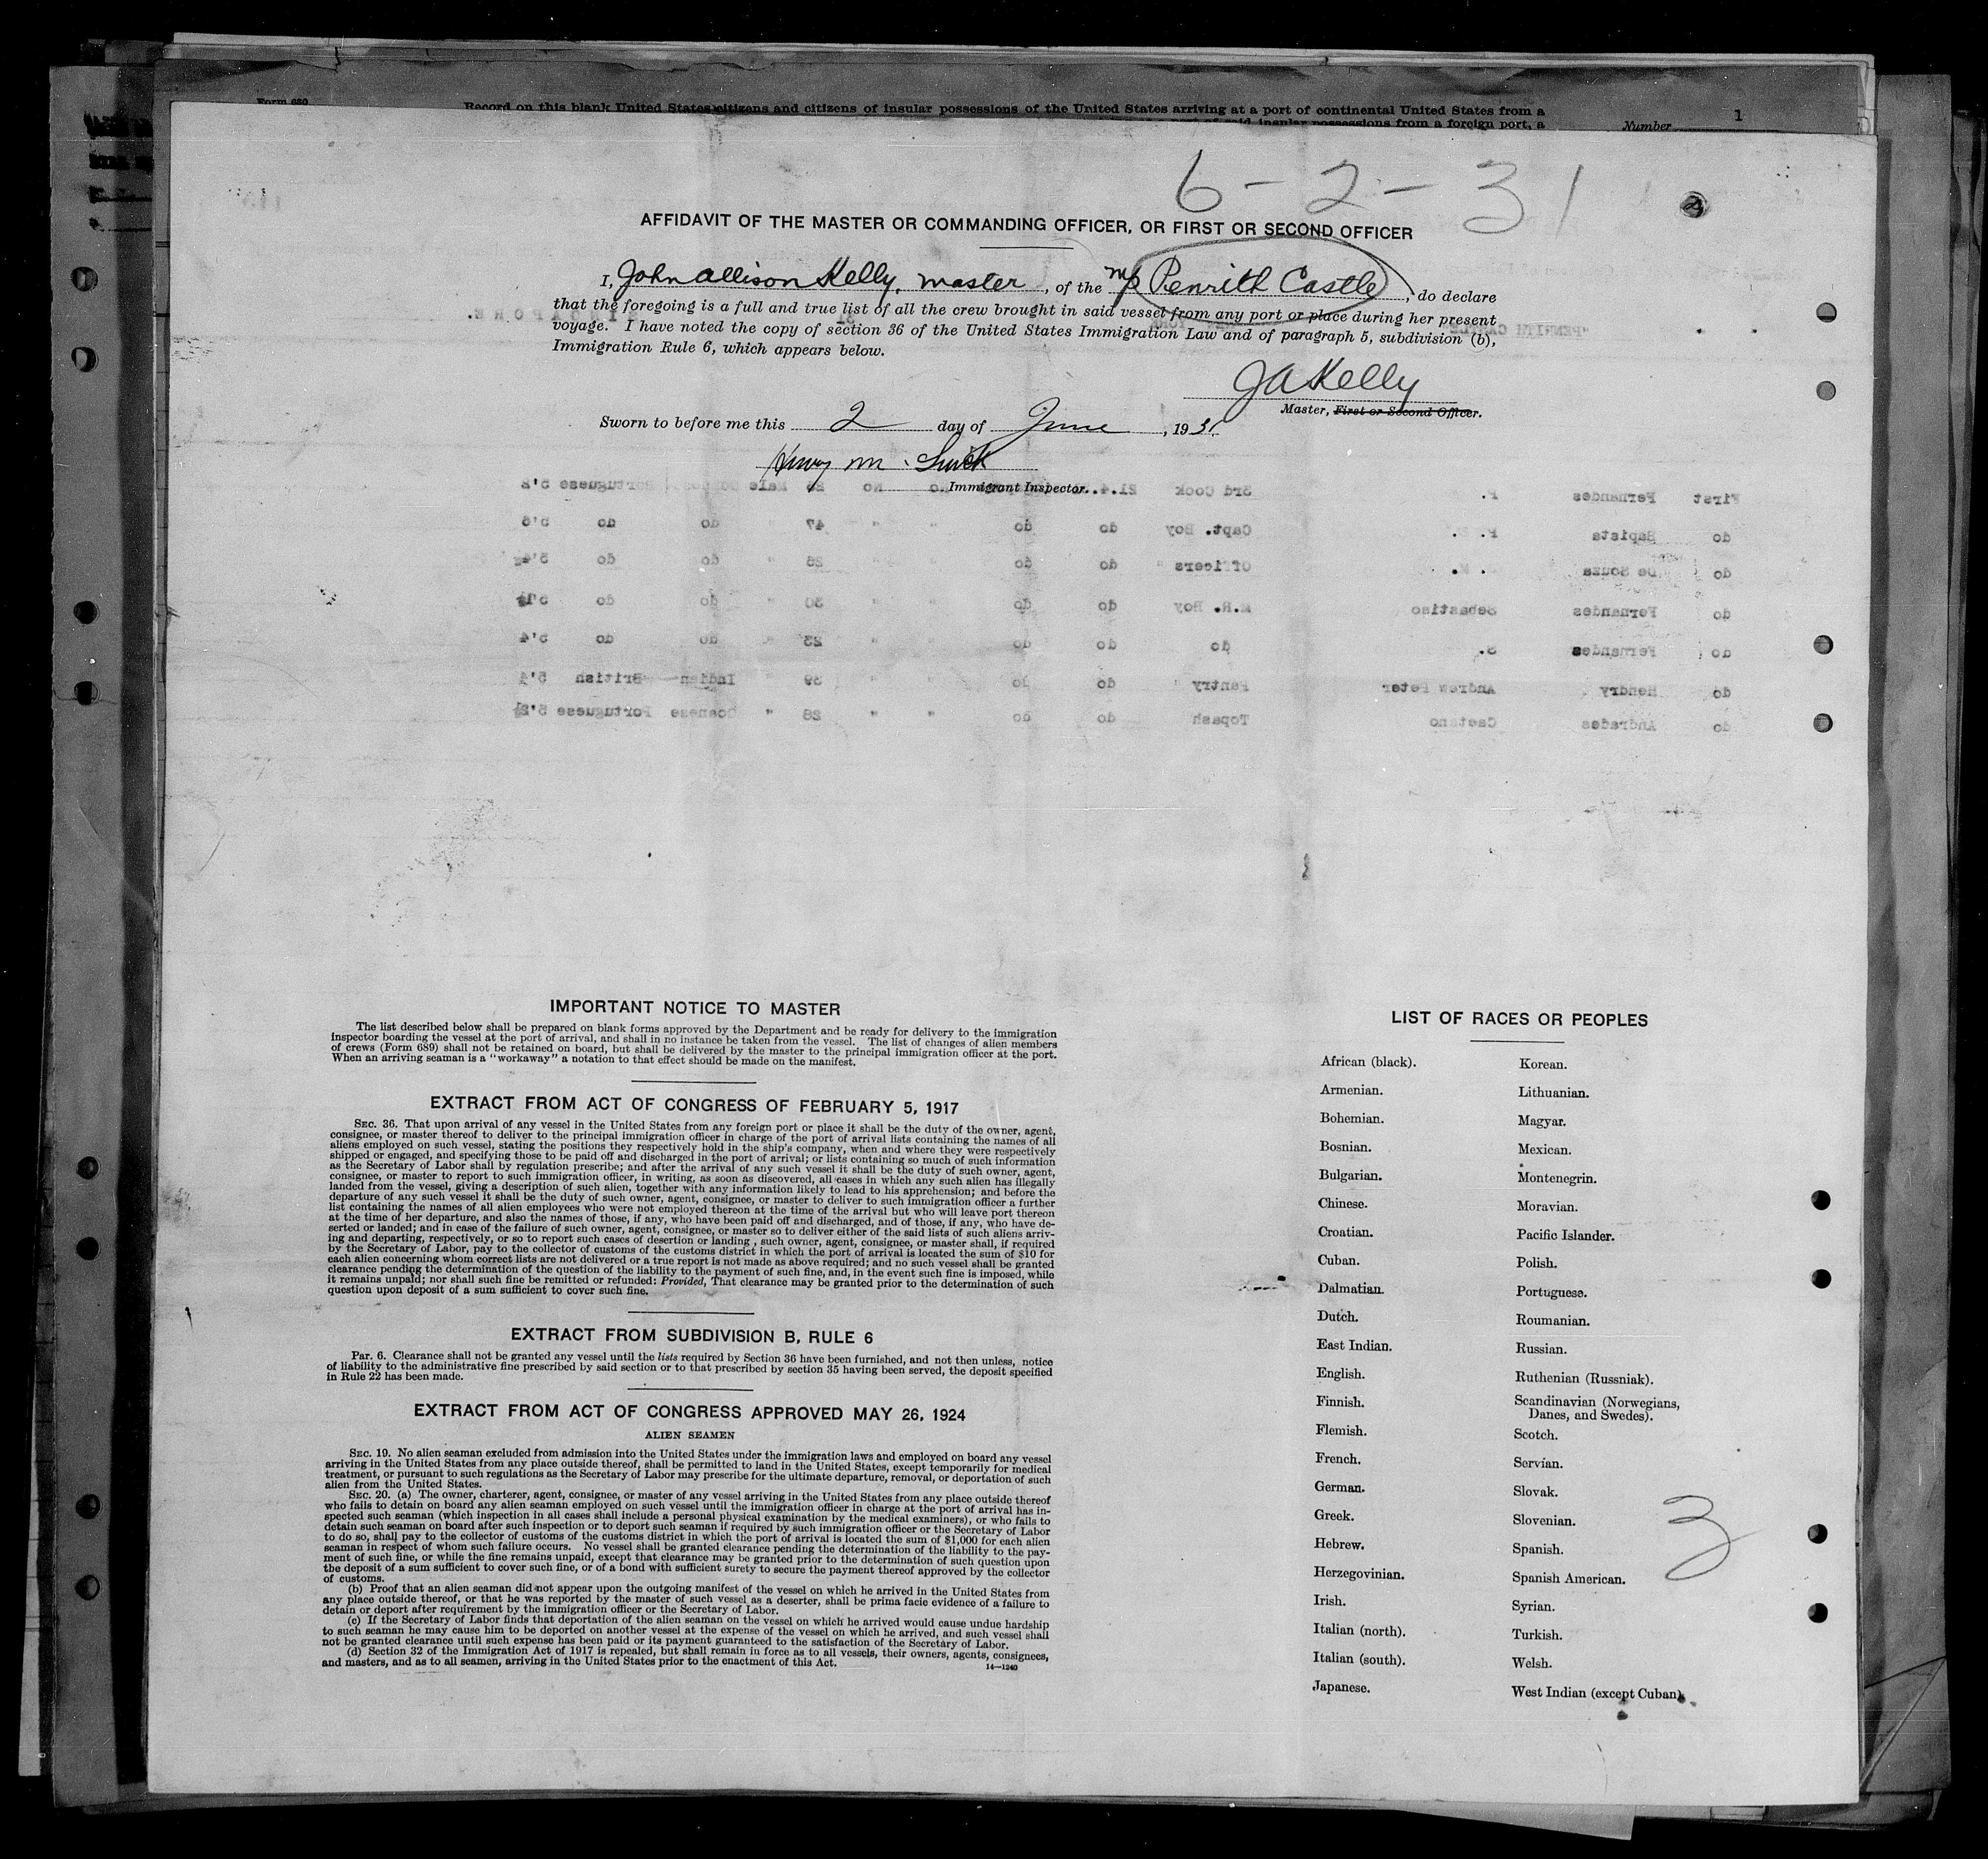 Form 680
Record on this blank United States citizens and citizens of insular possessions of the United States arriving at a port of continental United States from a
port of said insular possessions from a foreign port, a
Number
1
6-2-31
AFFIDAVIT OF THE MASTER OR COMMANDING OFFICER, OR FIRST OR SECOND OFFICER
I, John Allison Kelly, master, of the M/S Penrith Castle, do declare
that the foregoing is a full and true list of all the crew brought in said vessel from any port or place during her present
voyage. I have noted the copy of section 36 of the United States Immigration Law and of paragraph 5, subdivision (b),
Immigration Rule 6, which appears below.
JAKelly
Master, First or Second Officer.
Sworn to before me this 2 day of June, 1931.
Immigrant Inspector.
PENRITH CASTLE SINGAPORE.
First Fernandes 3rd Cook No 25 Male Portuguese 5'2
do Bapista Capt. Boy do do " " 47 " do do 5'6
do De Souza Officers " do do " " 26 " do do 5'4½
do Fernandes Sebastiao M.R. Boy do do " " 30 " do do 5'1½
do Fernandes S. do do do " " 23 " do do 5'4
do Hendry Andrew Peter Pantry " do do " " 39 " Indian British 5'4
do Andrades Caetano Topash do do " " 28 " Goanese Portuguese 5'2½
IMPORTANT NOTICE TO MASTER
The list described below shall be prepared on blank forms approved by the Department and be ready for delivery to the immigration
inspector boarding the vessel at the port of arrival, and shall in no instance be taken from the vessel. The list of changes of alien members
of crews (Form 689) shall not be retained on board, but shall be delivered by the master to the principal immigration officer at the port.
When an arriving seaman is a "workaway" a notation to that effect should be made on the manifest.
EXTRACT FROM ACT OF CONGRESS OF FEBRUARY 5, 1917
SEC. 36. That upon arrival of any vessel in the United States from any foreign port or place it shall be the duty of the owner, agent,
consignee, or master thereof to deliver to the principal immigration officer in charge of the port of arrival lists containing the names of all
aliens employed on such vessel, stating the positions they respectively hold in the ship's company, when and where they were respectively
shipped or engaged, and specifying those to be paid off and discharged in the port of arrival; or lists containing so much of such information
as the Secretary of Labor shall by regulation prescribe; and after the arrival of any such vessel it shall be the duty of such owner, agent,
consignee, or master to report to such immigration officer, in writing, as soon as discovered, all cases in which any such alien has illegally
landed from the vessel, giving a description of such alien, together with any information likely to lead to his apprehension; and before the
departure of any such vessel it shall be the duty of such owner, agent, consignee, or master to deliver to such immigration officer a further
list containing the names of all alien employees who were not employed thereon at the time of the arrival but who will leave port thereon
at the time of her departure, and also the names of those, if any, who have been paid off and discharged, and of those, if any, who have de-
serted or landed; and in case of the failure of such owner, agent, consignee, or master so to deliver either of the said lists of such aliens arriv-
ing and departing, respectively, or so to report such cases of desertion or landing , such owner, agent, consignee, or master shall, if required
by the Secretary of Labor, pay to the collector of customs of the customs district in which the port of arrival is located the sum of $10 for
each alien concerning whom correct lists are not delivered or a true report is not made as above required; and no such vessel shall be granted
clearance pending the determination of the question of the liability to the payment of such fine, and, in the event such fine is imposed, while
it remains unpaid; nor shall such fine be remitted or refunded: Provided, That clearance may be granted prior to the determination of such
question upon deposit of a sum sufficient to cover such fine.
EXTRACT FROM SUBDIVISION B, RULE 6
Par. 6. Clearance shall not be granted any vessel until the lists required by Section 36 have been furnished, and not then unless, notice
of liability to the administrative fine prescribed by said section or to that prescribed by section 35 having been served, the deposit specified
in Rule 22 has been made.
EXTRACT FROM ACT OF CONGRESS APPROVED MAY 26, 1924
ALIEN SEAMEN
SEC. 19. No alien seaman excluded from admission into the United States under the immigration laws and employed on board any vessel
arriving in the United States from any place outside thereof, shall be permitted to land in the United States, except temporarily for medical
treatment, or pursuant to such regulations as the Secretary of Labor may prescribe for the ultimate departure, removal, or deportation of such
alien from the United States.
SEC. 20. (a) The owner, charterer, agent, consignee, or master of any vessel arriving in the United States from any place outside thereof
who fails to detain on board any alien seaman employed on such vessel until the immigration officer in charge at the port of arrival has in-
spected such seaman (which inspection in all cases shall include a personal physical examination by the medical examiners), or who fails to
detain such seaman on board after such inspection or to deport such seaman if required by such immigration officer or the Secretary of Labor
to do so, shall pay to the collector of customs of the customs district in which the port of arrival is located the sum of $1,000 for each alien
seaman in respect of whom such failure occurs. No vessel shall be granted clearance pending the determination of the liability to the pay-
ment of such fine, or while the fine remains unpaid, except that clearance may be granted prior to the determination of such question upon
the deposit of a sum sufficient to cover such fine, or of a bond with sufficient surety to secure the payment thereof approved by the collector
of customs.
(b) Proof that an alien seaman did not appear upon the outgoing manifest of the vessel on which he arrived in the United States from
any place outside thereof, or that he was reported by the master of such vessel as a deserter, shall be prima facie evidence of a failure to
detain or deport after requirement by the immigration officer or the Secretary of Labor.
(c) If the Secretary of Labor finds that deportation of the alien seaman on the vessel on which he arrived would cause undue hardship
to such seaman he may cause him to be deported on another vessel at the expense of the vessel on which he arrived, and such vessel shall
not be granted clearance until such expense has been paid or its payment guaranteed to the satisfaction of the Secretary of Labor.
(d) Section 32 of the Immigration Act of 1917 is repealed, but shall remain in force as to all vessels, their owners, agents, consignees,
and masters, and as to all seamen, arriving in the United States prior to the enactment of this Act.
14—1240
LIST OF RACES OR PEOPLES
African (black).
Armenian.
Bohemian.
Bosnian.
Bulgarian.
Chinese.
Croatian.
Cuban.
Dalmatian.
Dutch.
East Indian.
English.
Finnish.
Flemish.
French.
German.
Greek.
Hebrew.
Herzegovinian.
Irish.
Italian (north).
Italian (south).
Japanese.
Korean.
Lithuanian.
Magyar.
Mexican.
Montenegrin.
Moravian.
Pacific Islander.
Polish.
Portuguese.
Roumanian.
Russian.
Ruthenian (Russniak).
Scandinavian (Norwegians,
Danes, and Swedes).
Scotch.
Servian.
Slovak.
Slovenian.
Spanish.
Spanish American.
Syrian.
Turkish.
Welsh.
West Indian (except Cuban).
3